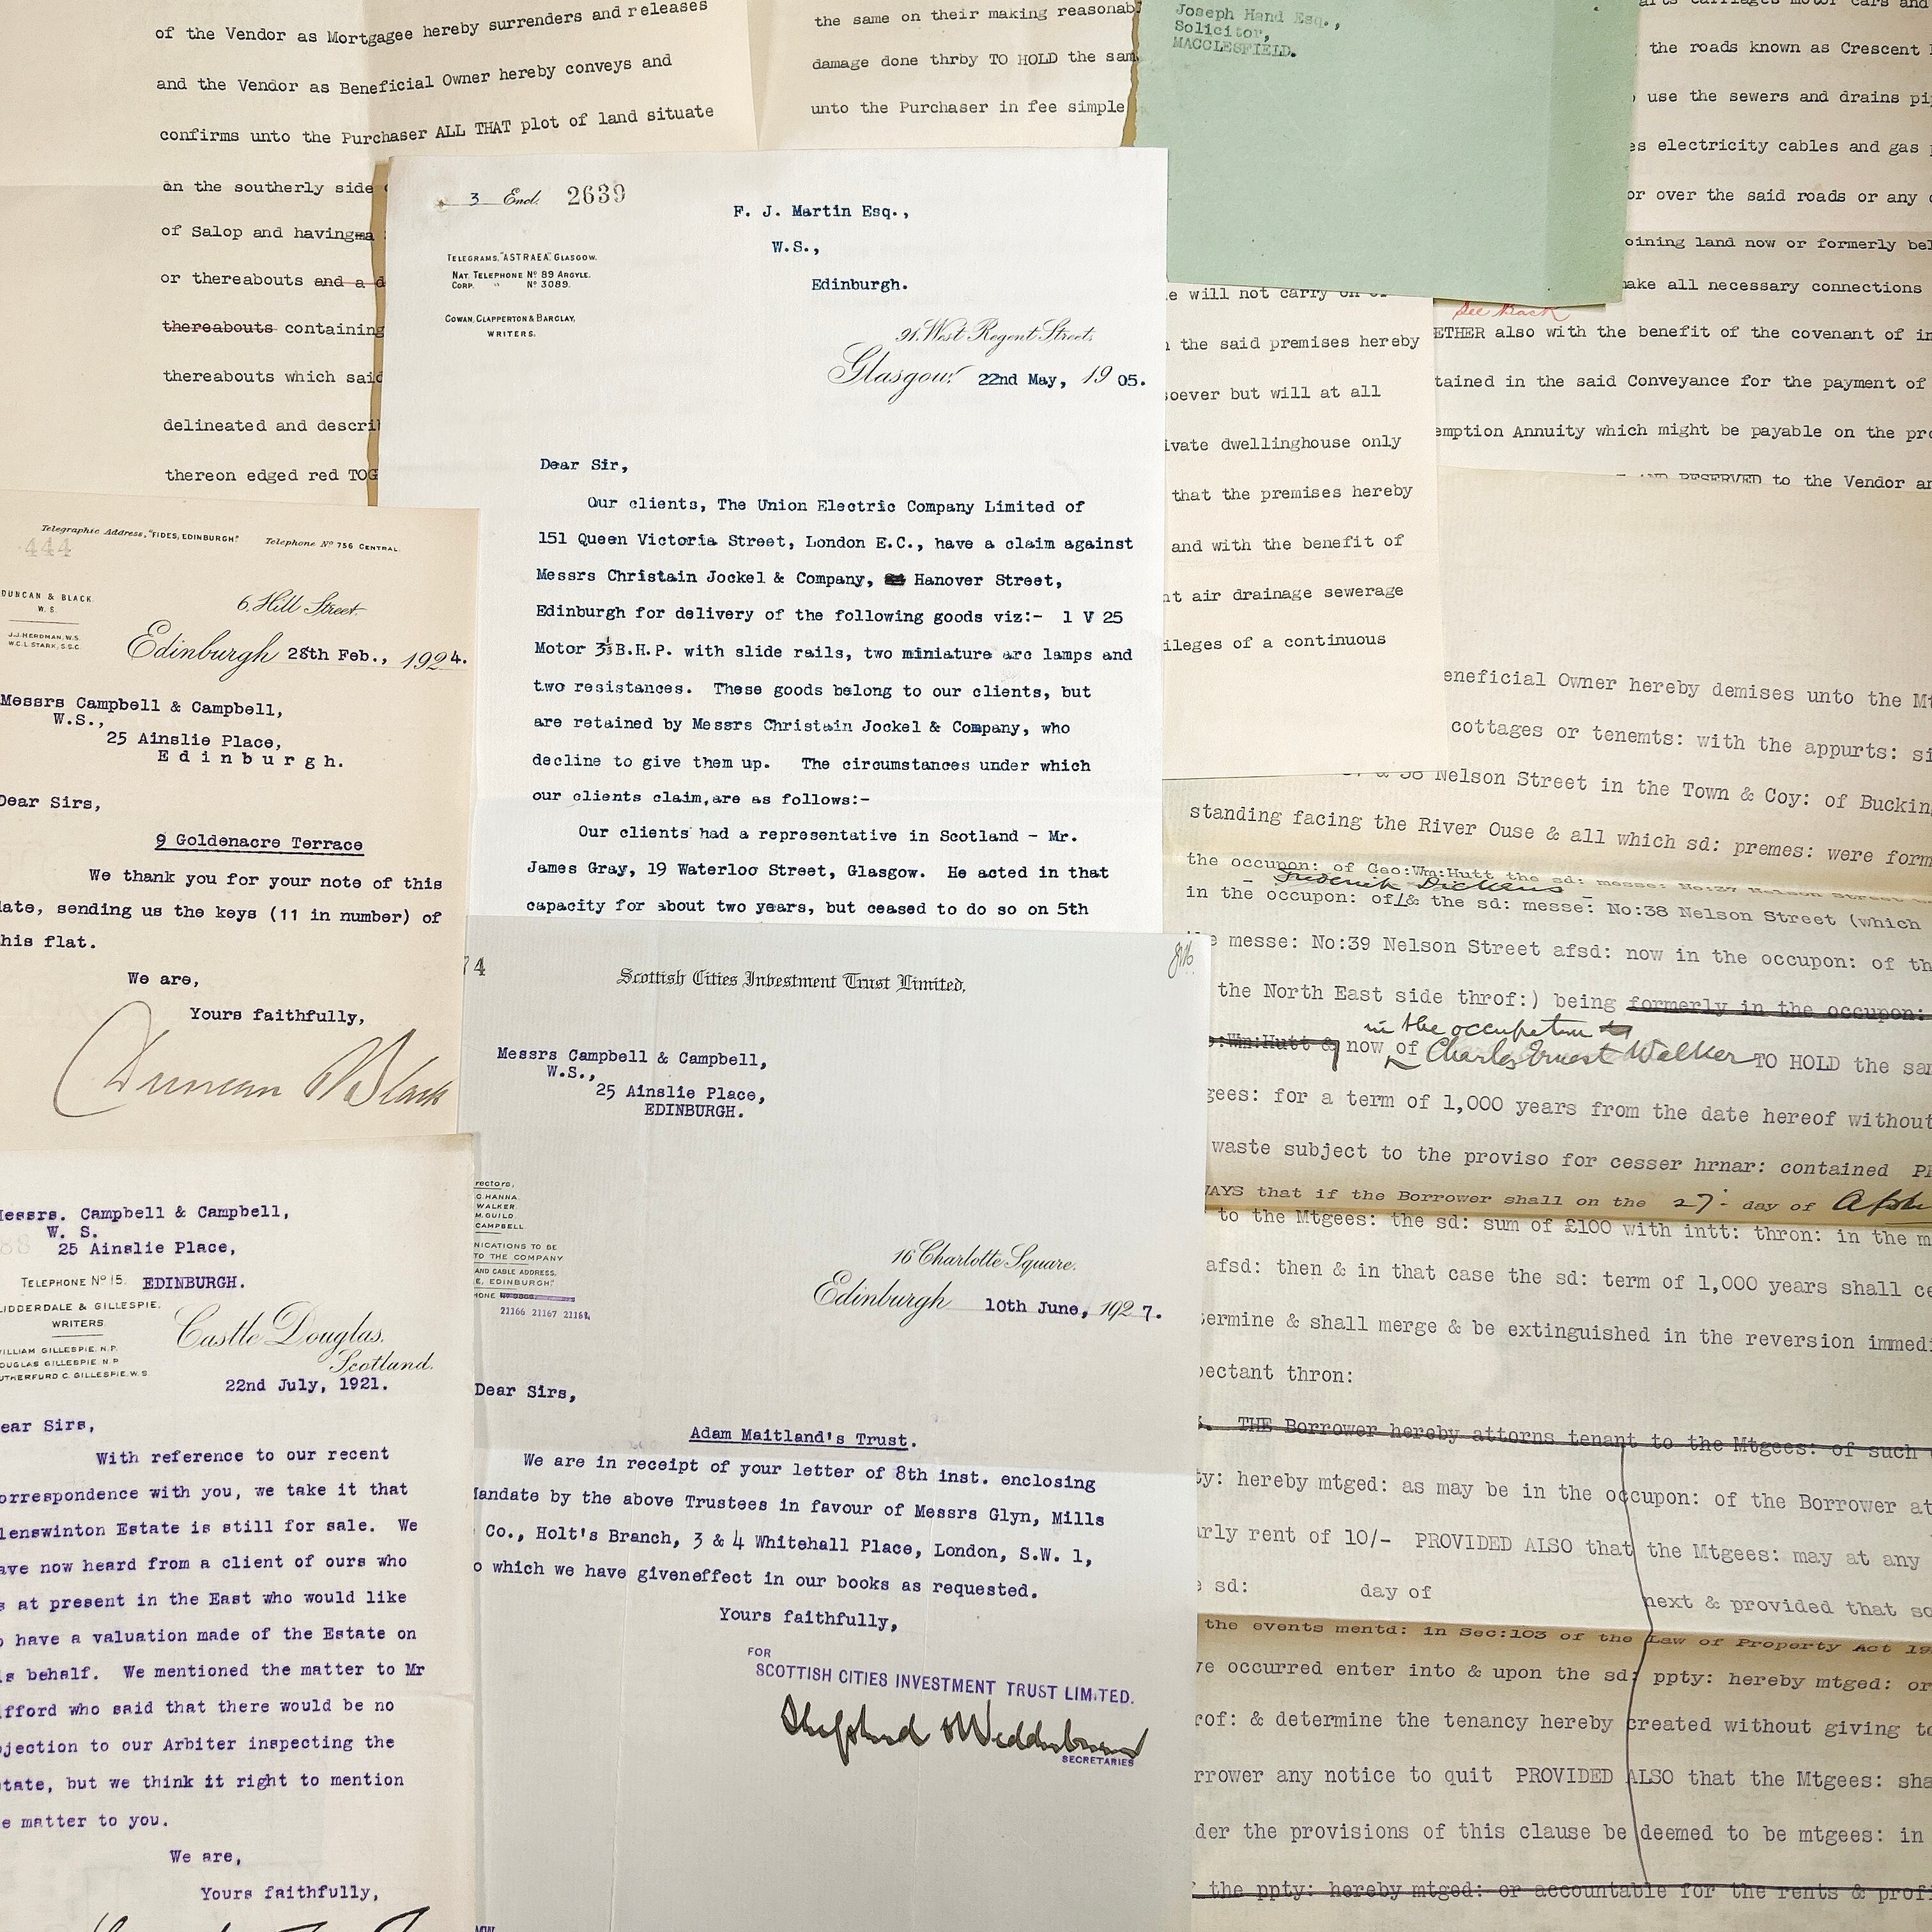 of the Vendor as Mortgagee hereby surrenders and releases
and the Vendor as Beneficial Owner hereby conveys and
confirms unto the Purchaser ALL THAT plot of land situate
on the southerly side
of Salop and having a
or thereabouts and a d
thereabouts containing
thereabouts which said
delineated and descri
thereon edged red TOG
the same on their making reasonab
damage done thrby TO HOLD the sam
unto the Purchaser in fee simple
Joseph Hand Esq.,
Solicitor,
MACCLESFIELD.
arts carriages motor cars and
the roads known as Crescent
use the sewers and drains pi
es electricity cables and gas
or over the said roads or any
joining land now or formerly bel
make all necessary connections
See Back
ETHER also with the benefit of the covenant of in
tained in the said Conveyance for the payment of
emption Annuity which might be payable on the pro
AND RESERVED to the Vendor an
e will not carry on or
the said premises hereby
soever but will at all
ivate dwellinghouse only
that the premises hereby
and with the benefit of
ht air drainage sewerage
ileges of a continuous
3 Encl. 2639
F. J. Martin Esq.,
W.S.,
Edinburgh.
TELEGRAMS, "ASTRAEA," GLASGOW.
NAT. TELEPHONE Nº 89 ARGYLE.
CORP. " Nº 3089.
COWAN, CLAPPERTON & BARCLAY,
WRITERS.
91, West Regent Street,
Glasgow, 22nd May, 1905.
Dear Sir,
Our clients, The Union Electric Company Limited of
151 Queen Victoria Street, London E.C., have a claim against
Messrs Christain Jockel & Company, Hanover Street,
Edinburgh for delivery of the following goods viz:- 1 V 25
Motor 3½B.H.P. with slide rails, two miniature arc lamps and
two resistances. These goods belong to our clients, but
are retained by Messrs Christain Jockel & Company, who
decline to give them up. The circumstances under which
our clients claim,are as follows:-
Our clients had a representative in Scotland - Mr.
James Gray, 19 Waterloo Street, Glasgow. He acted in that
capacity for about two years, but ceased to do so on 5th
Telegraphic Address, "FIDES, EDINBURGH." Telephone Nº 756 CENTRAL.
444
DUNCAN & BLACK.
W. S.
J.J. HERDMAN, W.S.
W.C.L. STARK, S.S.C.
6, Hill Street
Edinburgh 28th Feb., 1924.
Messrs Campbell & Campbell,
W.S.,
25 Ainslie Place,
Edinburgh.
Dear Sirs,
9 Goldenacre Terrace
We thank you for your note of this
date, sending us the keys (11 in number) of
this flat.
We are,
Yours faithfully,
Duncan & Black
Messrs. Campbell & Campbell,
W. S.
25 Ainslie Place,
TELEPHONE Nº 15. EDINBURGH.
LIDDERDALE & GILLESPIE,
WRITERS.
WILLIAM GILLESPIE, N.P.
DOUGLAS GILLESPIE, N.P.
RUTHERFURD C. GILLESPIE, W.S.
Castle Douglas,
Scotland.
22nd July, 1921.
ear Sirs,
With reference to our recent
orrespondence with you, we take it that
lenswinton Estate is still for sale. We
ave now heard from a client of ours who
s at present in the East who would like
o have a valuation made of the Estate on
is behalf. We mentioned the matter to Mr
ifford who said that there would be no
bjection to our Arbiter inspecting the
state, but we think it right to mention
e matter to you.
We are,
Yours faithfully,
74
Scottish Cities Investment Trust Limited.
Messrs Campbell & Campbell,
W.S.,
25 Ainslie Place,
EDINBURGH.
rectors,
G. HANNA.
WALKER.
M. GUILD.
CAMPBELL
NICATIONS TO BE
TO THE COMPANY
AND CABLE ADDRESS,
E, EDINBURGH."
HONE
21166 21167 21168.
16 Charlotte Square.
Edinburgh 10th June, 1927.
Dear Sirs,
Adam Maitland's Trust.
We are in receipt of your letter of 8th inst. enclosing
Mandate by the above Trustees in favour of Messrs Glyn, Mills
Co., Holt's Branch, 3 & 4 Whitehall Place, London, S.W. 1,
o which we have giveneffect in our books as requested.
Yours faithfully,
FOR
SCOTTISH CITIES INVESTMENT TRUST LIMITED.
Shepherd & Wedderburn
SECRETARIES
eneficial Owner hereby demises unto the Mt
cottages or tenemts: with the appurts: si
& 38 Nelson Street in the Town & Coy: of Bucking
standing facing the River Ouse & all which sd: premes: were form
the occupon: of Geo:Wm:Hutt the sd: messe: No:37 Nelson Street
Frederick Dickens
in the occupon: of & the sd: messe: No:38 Nelson Street (which
e messe: No:39 Nelson Street afsd: now in the occupon: of th
the North East side throf:) being formerly in the occupon:
in the occupation
:Wm:Hutt & now of Charles Ernest Walker TO HOLD the sam
gees: for a term of 1,000 years from the date hereof without
waste subject to the proviso for cesser hrnar: contained PR
WAYS that if the Borrower shall on the 27: day of
to the Mtgees: the sd: sum of £100 with intt: thron: in the m
afsd: then & in that case the sd: term of 1,000 years shall ce
termine & shall merge & be extinguished in the reversion immedi
pectant thron:
THE Borrower hereby attorns tenant to the Mtgees: of such
ty: hereby mtged: as may be in the occupon: of the Borrower at
arly rent of 10/- PROVIDED ALSO that the Mtgees: may at any
e sd: day of next & provided that so
the events mentd: in Sec:103 of the Law of Property Act 19
ve occurred enter into & upon the sd: ppty: hereby mtged: or
rof: & determine the tenancy hereby created without giving to
rrower any notice to quit PROVIDED ALSO that the Mtgees: sha
der the provisions of this clause be deemed to be mtgees: in
the ppty: hereby mtged: or accountable for the rents & profi